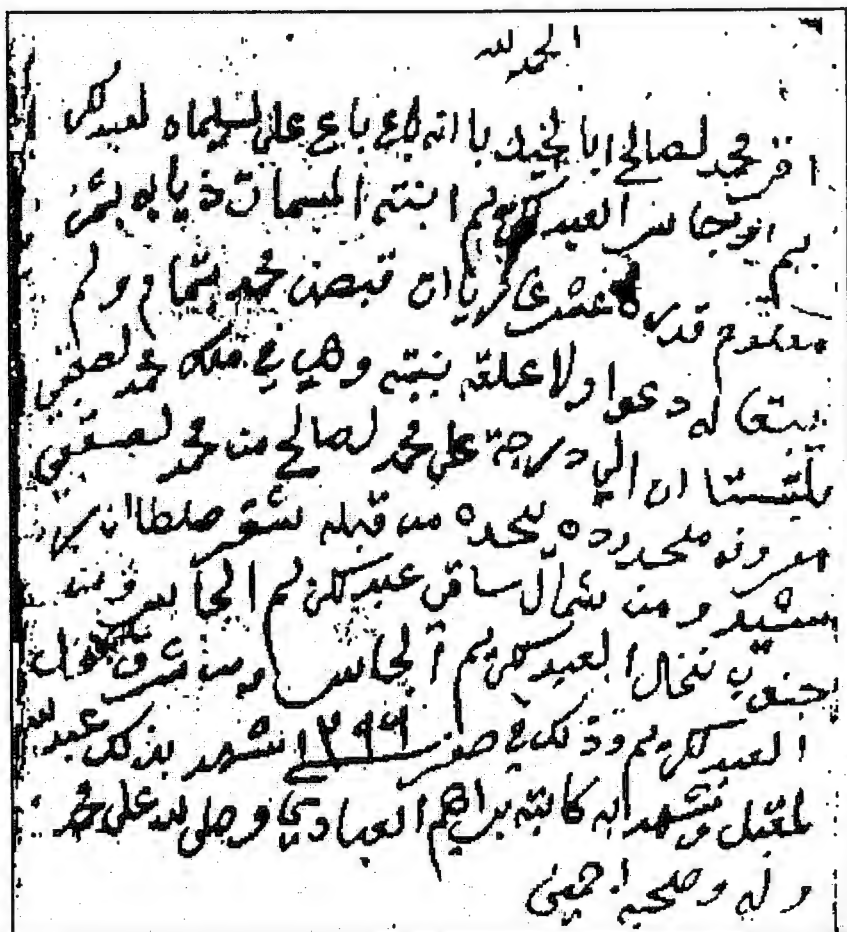 الحمد لله
اقر محمد لصالح ابا لخيل با انه باع على لسليمان لعبد لكر
يم ابو جاسر العبد لكريم ابنته المسمات ذيابه بثمن
معلوم قدره عشر اريالات قبضن محمد بتمام ولم
يبتقا له دعوا ولا علقه بنبته وهي في ملك محمد لصقعبي
ان الي درجة على محمد لصالح من محمد لصقعبي
معروفه ملحدوده يحده من قبله
ومن شمال ساقي عبد لكريم الجاسر ومن
جنوب نخال العبد لكريم الجاسر ومن شرق
العبد لكريم وذلك في صفر سنة ١٢٩٩ شهد بذلك عبد لله
لمقبل وشهد به كاتبه براهيم العبادي وصلى لله على محمد
وله وصحبه اجمعين